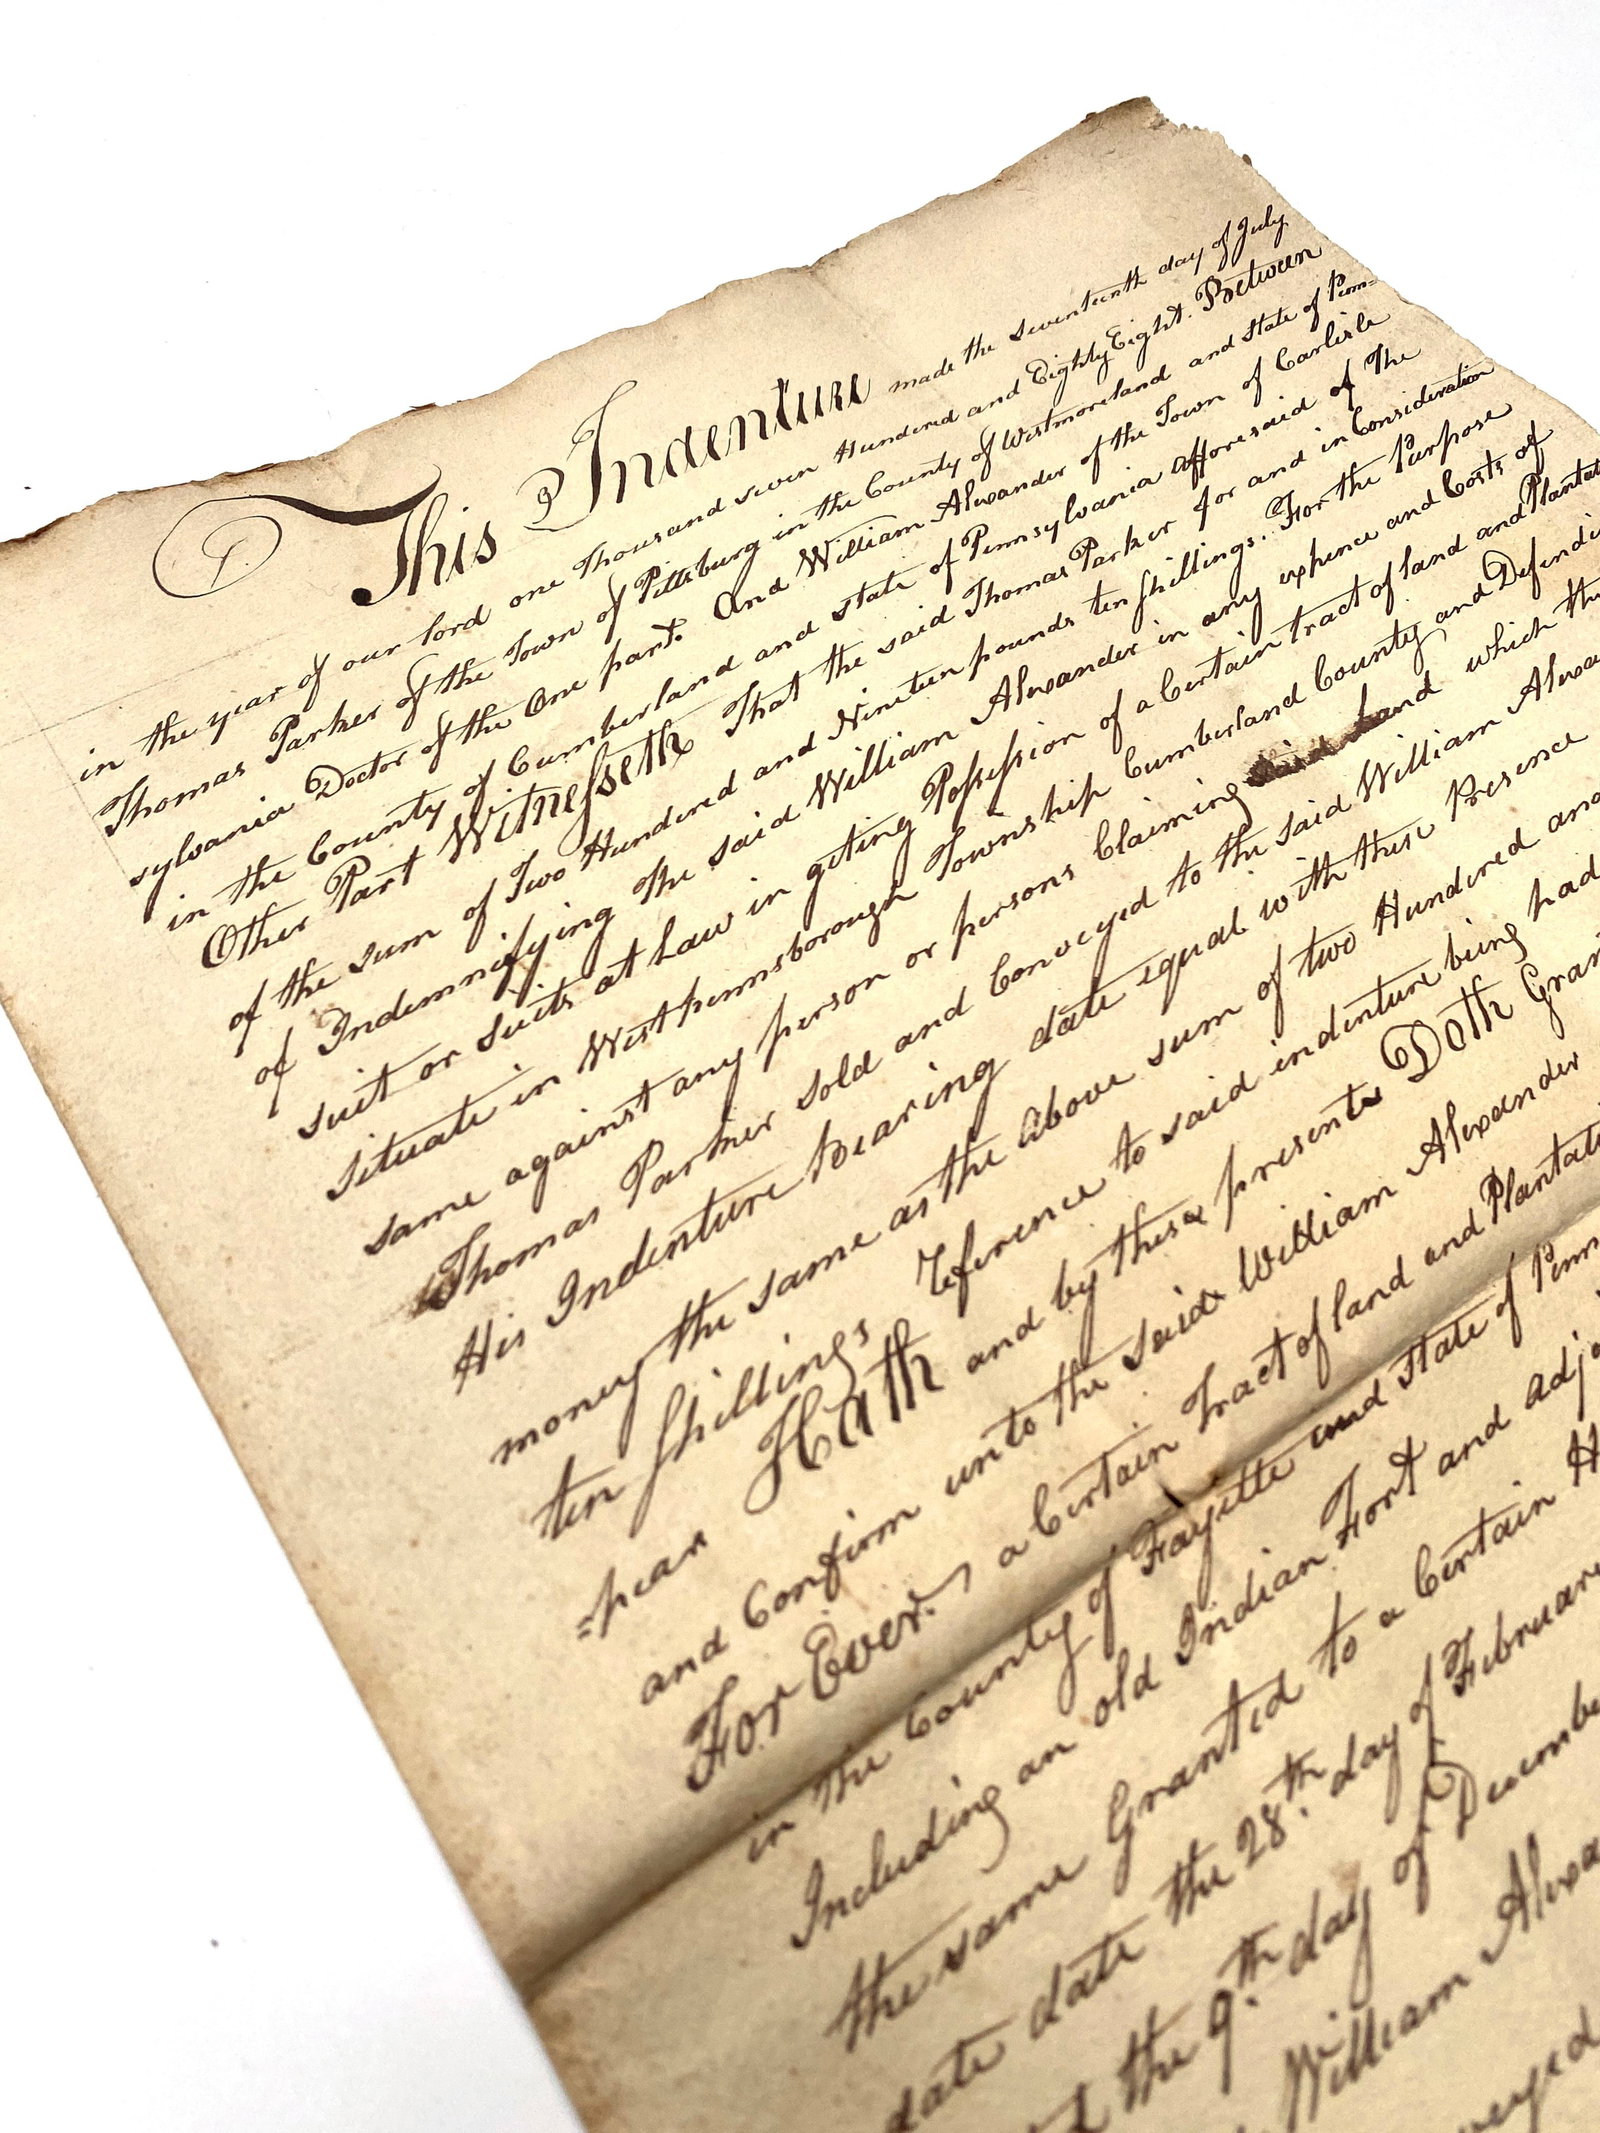 This Indenture made the seventeenth day of July
in the year of our lord one Thousand seven Hundred and Eighty Eight. Between
Thomas Parker of the Town of Pittsburg in the County of Westmoreland and State of Penn=
sylvania Doctor of the One part. And William Alexander of the Town of Carlisle
in the County of Cumberland and state of Pennsylvania afforesaid of The
Other Part Witnesseth That the said Thomas Parker for and in Consideration
of the sum of Two Hundred and Nineteen pounds ten shillings. For the Purpose
of Indemnifying the said William Alexander in any expence and Costs of
suit or suits at Law in geting Possession of a Certain tract of land and Plantat
situate in West pennsborough Township Cumberland County and Defendi
same against any person or persons Claiming said Land which the
Thomas Parker sold and Conveyed to the said William Alexa
His Indenture bearing date equal with these Presence
money the same as the above sum of two Hundred and
ten shillings Reference to said indenture being had
=pear Hath and by these presents Doth Gran
and Confirm unto the said William Alexander
For Ever. a Certain Tract of land and Plantati
in the County of Fayette and State of Penn
Including an old Indian Fort and adjo
the same Granted to a Certain H
date date the 28th. day of Februar
the 9th. day of Decembe
William Alexa